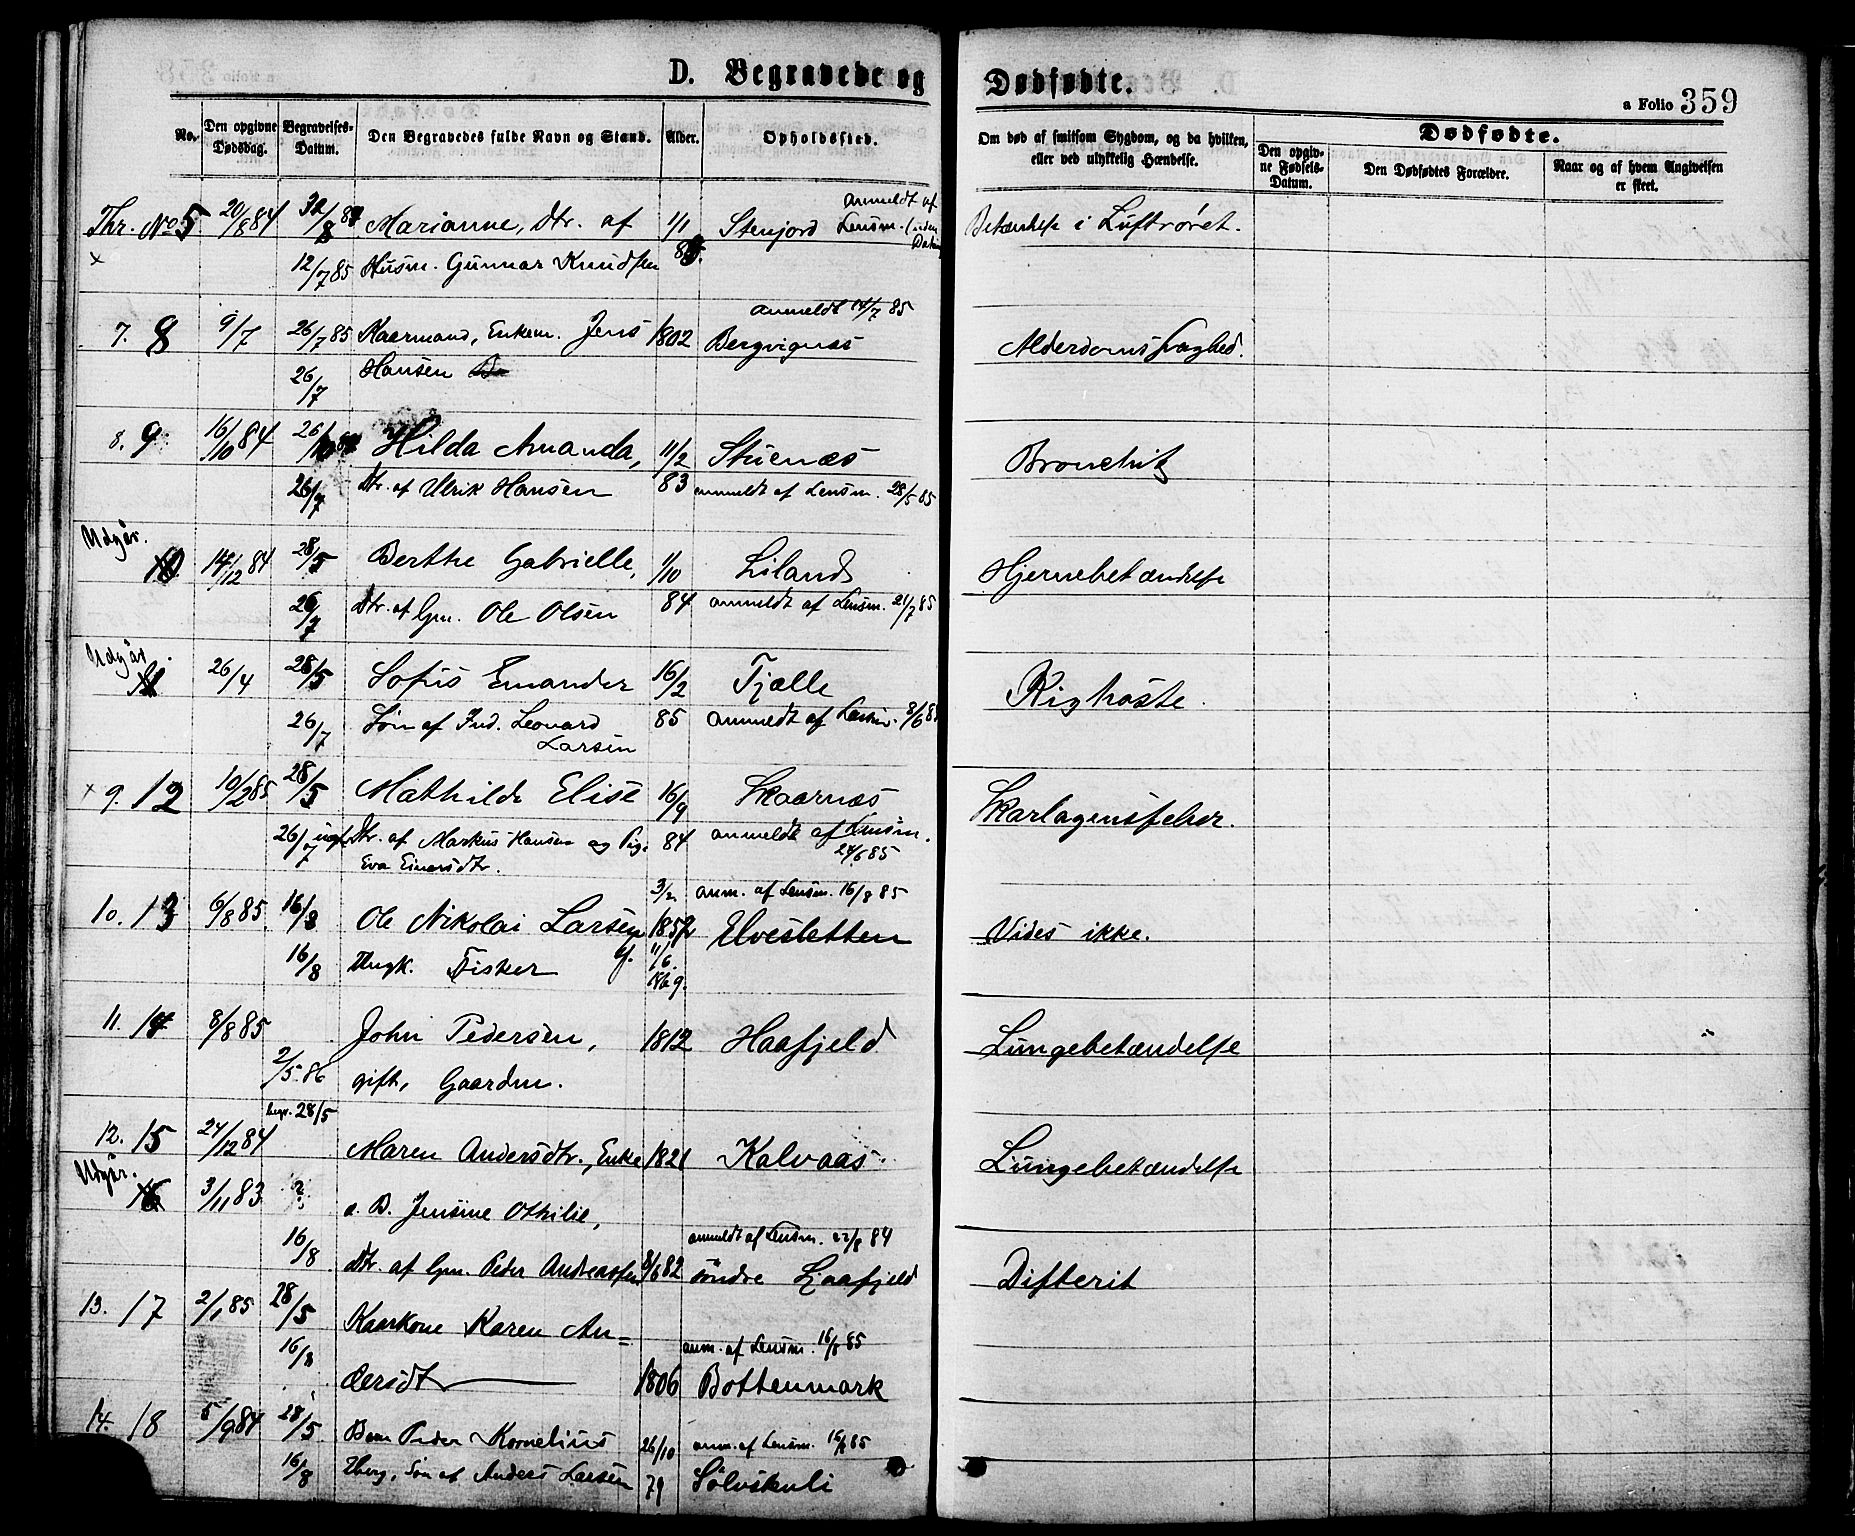 D. Begravede og Dødfødte.
a Folio 359
No.
Den opgivne Dødsdag.
Begravelses-Datum.
Den Begravedes fulde Navn og Stand.
Alder.
Opholdssted.
Om død af smitsom Sygdom, og da hvilken, eller ved ulykkelig Hændelse.
Dødfødte.
Den opgivne Fødsels-Datum.
Den Dødfødtes Forældre.
Naar og af hvem Angivelsen er skeet.
anmeldt af
Thr. No 5 20/8 84 Marianne, Dtr. af 1/1 Stenjord Lensm. i Luftrøret.
x 12/7 85 Husm. Gunnar Knudsen
anmeldt 14/7 85
7. 8 9/7 26/7 85 Kaarmand, Enkem. Jens 1802 Bergvignæs Alderdomssvaghed.
26/7 Hansen
8. 9 16/10 84 26/10 84 Hilda Amanda, 11/2 Stuenæs Bronchit
26/7 Dtr. af Ulrik Hansen 83 anmeldt af Lensm. 28/5 85
Udgår.
10 14/12 84 28/5 Berthe Gabrielle, 1/10 Liland Hjernebetændelse
26/7 Dtr. af Gm. Ole Olsen 84 anmeldt af Lensm. 21/7 85
Udgår.
11 26/4 28/5 Sofus Emander 16/2 Tjælle Kighoste.
26/7 Søn af Ind. Leonard 85 anmeldt af Lensm. 8/6 85
Larsen
x 9. 12 10/2 85 28/5 Mathilde Elise 16/9 Skaarnæs Skarlagensfeber.
26/7 Dtr. af Markus Hansen og Pig. 84 anmeldt af Lensm.
Eva Einarsdtr. 24/6 85
3/2 anm. af Lensm. 16/8 85
10. 13 6/8 85 16/8 Ole Nikolai Larsen 1852 Elvesletten Vides ikke.
16/8 Ungk. Fisker 11/6
11. 14 8/8 85 John Pedersen, 1812 Haafjeld Lungebetændelse
2/5 86 gift, Gaardm.
begr. 28/5
12. 15 24/12 84 Maren Andersdtr., Enke 1821 Kalvaas Lungebetændelse
Udgår.
16 3/11 83 ? a. B. Jensine Othilie,
anmeldt af Lensm. 22/8 84
16/8 Dtr. af Gm. Peder Andreassen 8/6 82 søndre Haafjeld Difterit
13. 17 2/1 85 28/5 Kaarkone Karen An=
16/8 anm. af Lensm. 16/8 85
dersdt 1806 Bottenmark
14. 18 5/9 84 28/5 Barn Peder Kornelius 26/10 anm. af Lensm. 16/8 85
16/8 Eberg, Søn af Anders Larsen 79 Sølvskenli